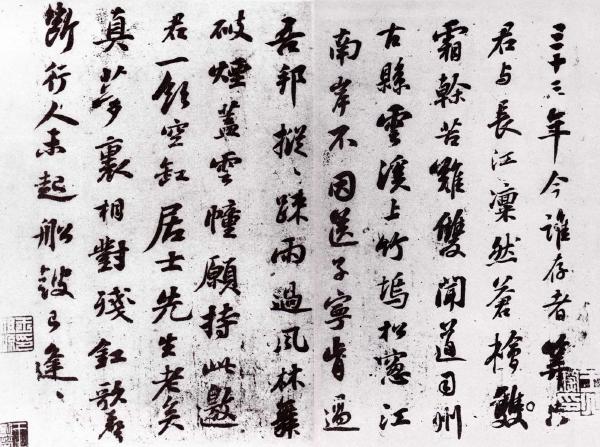 三十三年今誰存者算只
君与長江凛然蒼檜雙
霜榦苦難雙聞道司州
古縣雲溪上竹塢松窻江
南岸不因送子寧肯過
吾邦摐〻踈雨過風林舞
破煙蓋雲幢願持此邀
君一飲空缸居士先生老矣
真夢裏相對殘釭歌聲
斷行人未起船鼓已逢〻